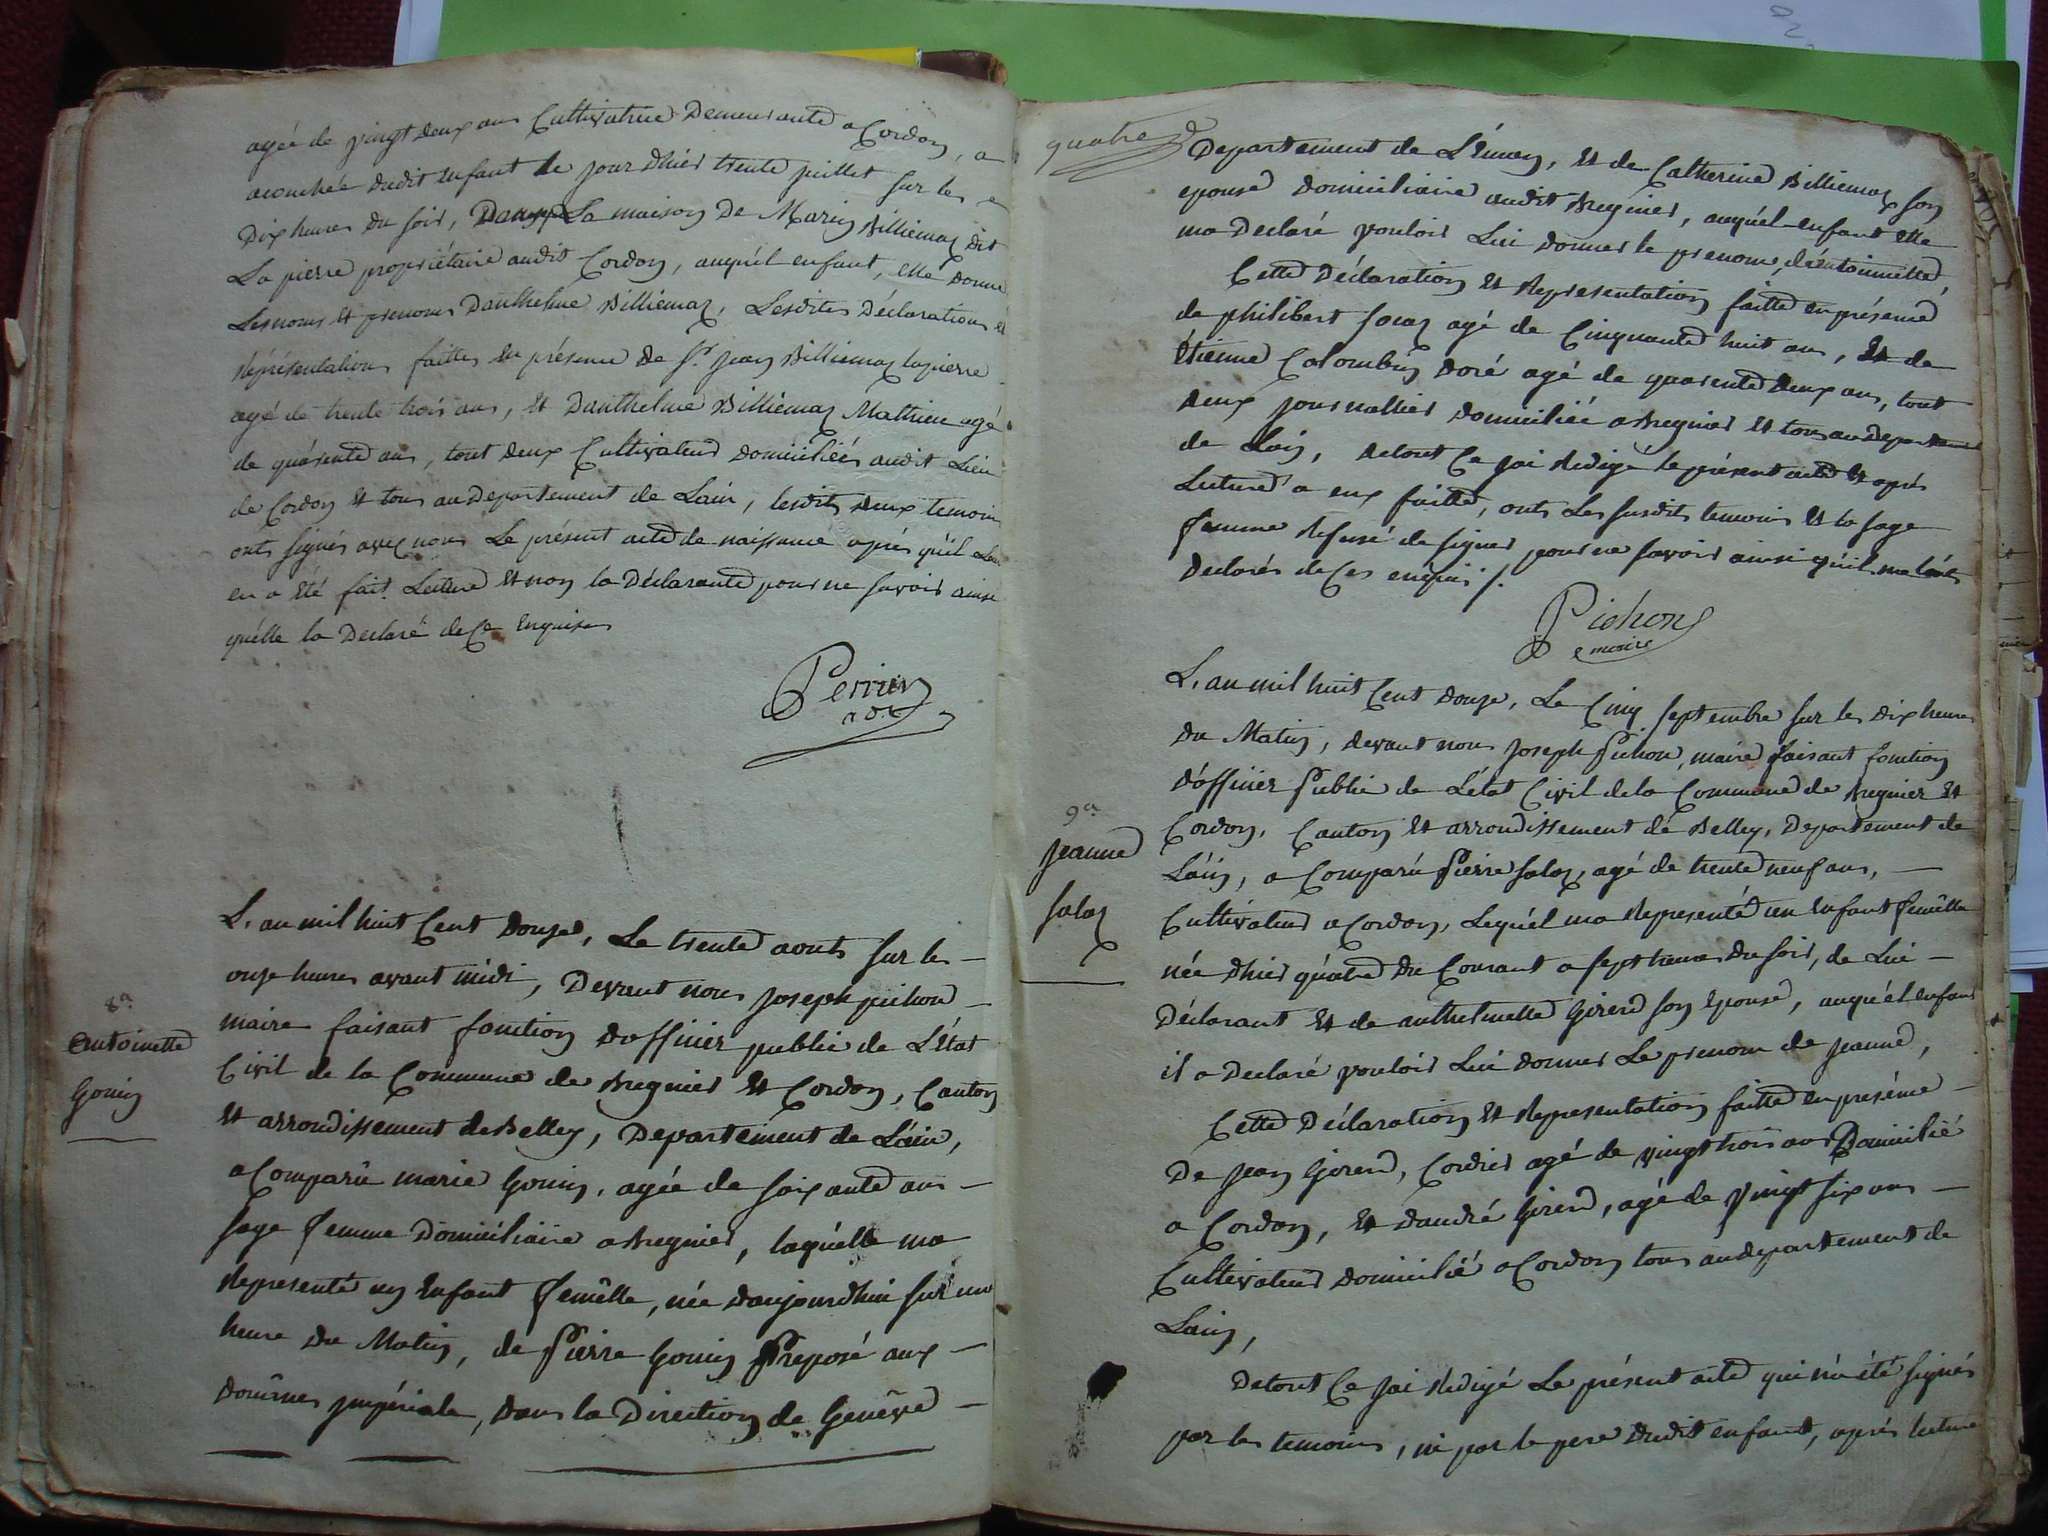 agée de vingt deux ans Cultivatrice Demeurante a Cordon, a
acouchée dudit enfant le jour dhier trente juillet sur les
Dix heures du soir, Dans La maison De Marin Billiemaz dit
La pierre propriétaire audit Cordon, auquél enfant, elle donne
Les noms et prenoms Danthelme Billiemaz, Lesdites Déclarations et
Réprésentation faittes en présence de Sr. jean Billiemaz lapierre
agé de trente trois ans, et Danthelme Billiémaz Mathieu agé
de quarente ans, tout deux Cultivateurs domiciliées audit Lieu
de Cordon et tous au Departement de Lain, lesdits deux temoin
onts signés avec nous Le présent acte de naissance aprés qu'il
en a été fait Lecture et non la Déclarante pour ne savoir ainsi
quélle la Declaré de Ce Enquise
Perrier
adj.
8e.
antoinette
Gonin
L. an mil huit Cent douze, Le trente aouts sur les
onze heures avant midi, Devant nous joseph pichon
maire faisant fonction dofficier public de L'État
Civil de la Commune de Bregnier et Cordon, Canton
et arrondissement de Belley, Departement de Láin,
a Comparû marie Gonin, agée de soixante ans
sage femme Domiciliaire a Bregnier, laquélle ma
Representé un Enfant femêlle, née daujourdhui sur une
heure du Matin, de Pierre Gonin Preposé aux
douânes jmpériale, dans la Direction de Genêve
quatre
Departement de Léman, et de Catherine Billiemaz son
epouse domiciliaire audit Bregnier, auquél enfant elle
ma Declaré vouloir Lui donner le prenom, d'éantoinnette,
Cette Déclaration et Representation faitte en présence
de philibert Jocaz agé de Cinquante huit ans, et de
étienne Colombin doré agé de quarente deux ans, tout
deux journallier domiciliée a Bregnier et tous au Departement
de Lain, detout Ce jai Redigé le présent acte et aprés
Lecture a eux faitte, onts Les susdits temoins et la sage
femme Refusé de signer pour ne savoir ainsi quil me lonts
Declarés de Ces enquis /.
Pichon
maire
9e.
jeanne
salaz
L. an mil huit Cent douze, Le Cinq septembre sur les dix heures
du Matin, devant nous joseph Pichon, maire faisant fonction
d'officier Public de L'état Civil de la Commune de Bregnier et
Cordon, Canton et arrondissement de Belley, Departement de
Láin, a Comparû Pierre salaz, agé de trente neuf ans,
Cultivateur a Cordon, Lequél ma Representé un Enfant femêlle
née dhier quatre du Courant a sept heures du soir, de Lui
Déclarant et de anthelmette Girerd son epouse, auquél enfant
il a Declaré vouloir Lui donner Le prenom de jeanne,
Cette Déclaration et Representation faitte en presénce
De jean Girerd, Cordier agé de vingt trois ans Domicilié
a Cordon, et dandré Girerd, agé de vingt six ans
Cultivateur domicilié a Cordon tous au departement de
Lain,
Detout Ce jai Redigé Le présent acte qui n'a été signés
par les temoins, ni par le pere dudit enfant, aprés lecture